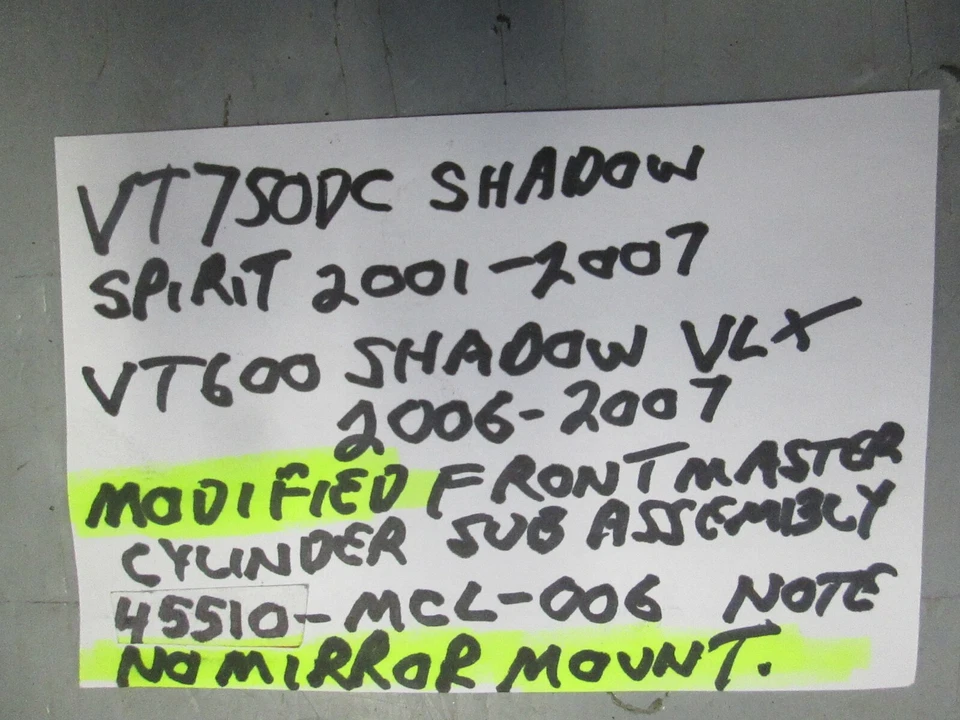 VT750DC SHADOW
SPIRIT 2001-2007
VT600 SHADOW VLX
2006-2007
MODIFIED FRONT MASTER
CYLINDER SUB ASSEMBLY
45510-MCL-006 NOTE
NO MIRROR MOUNT.